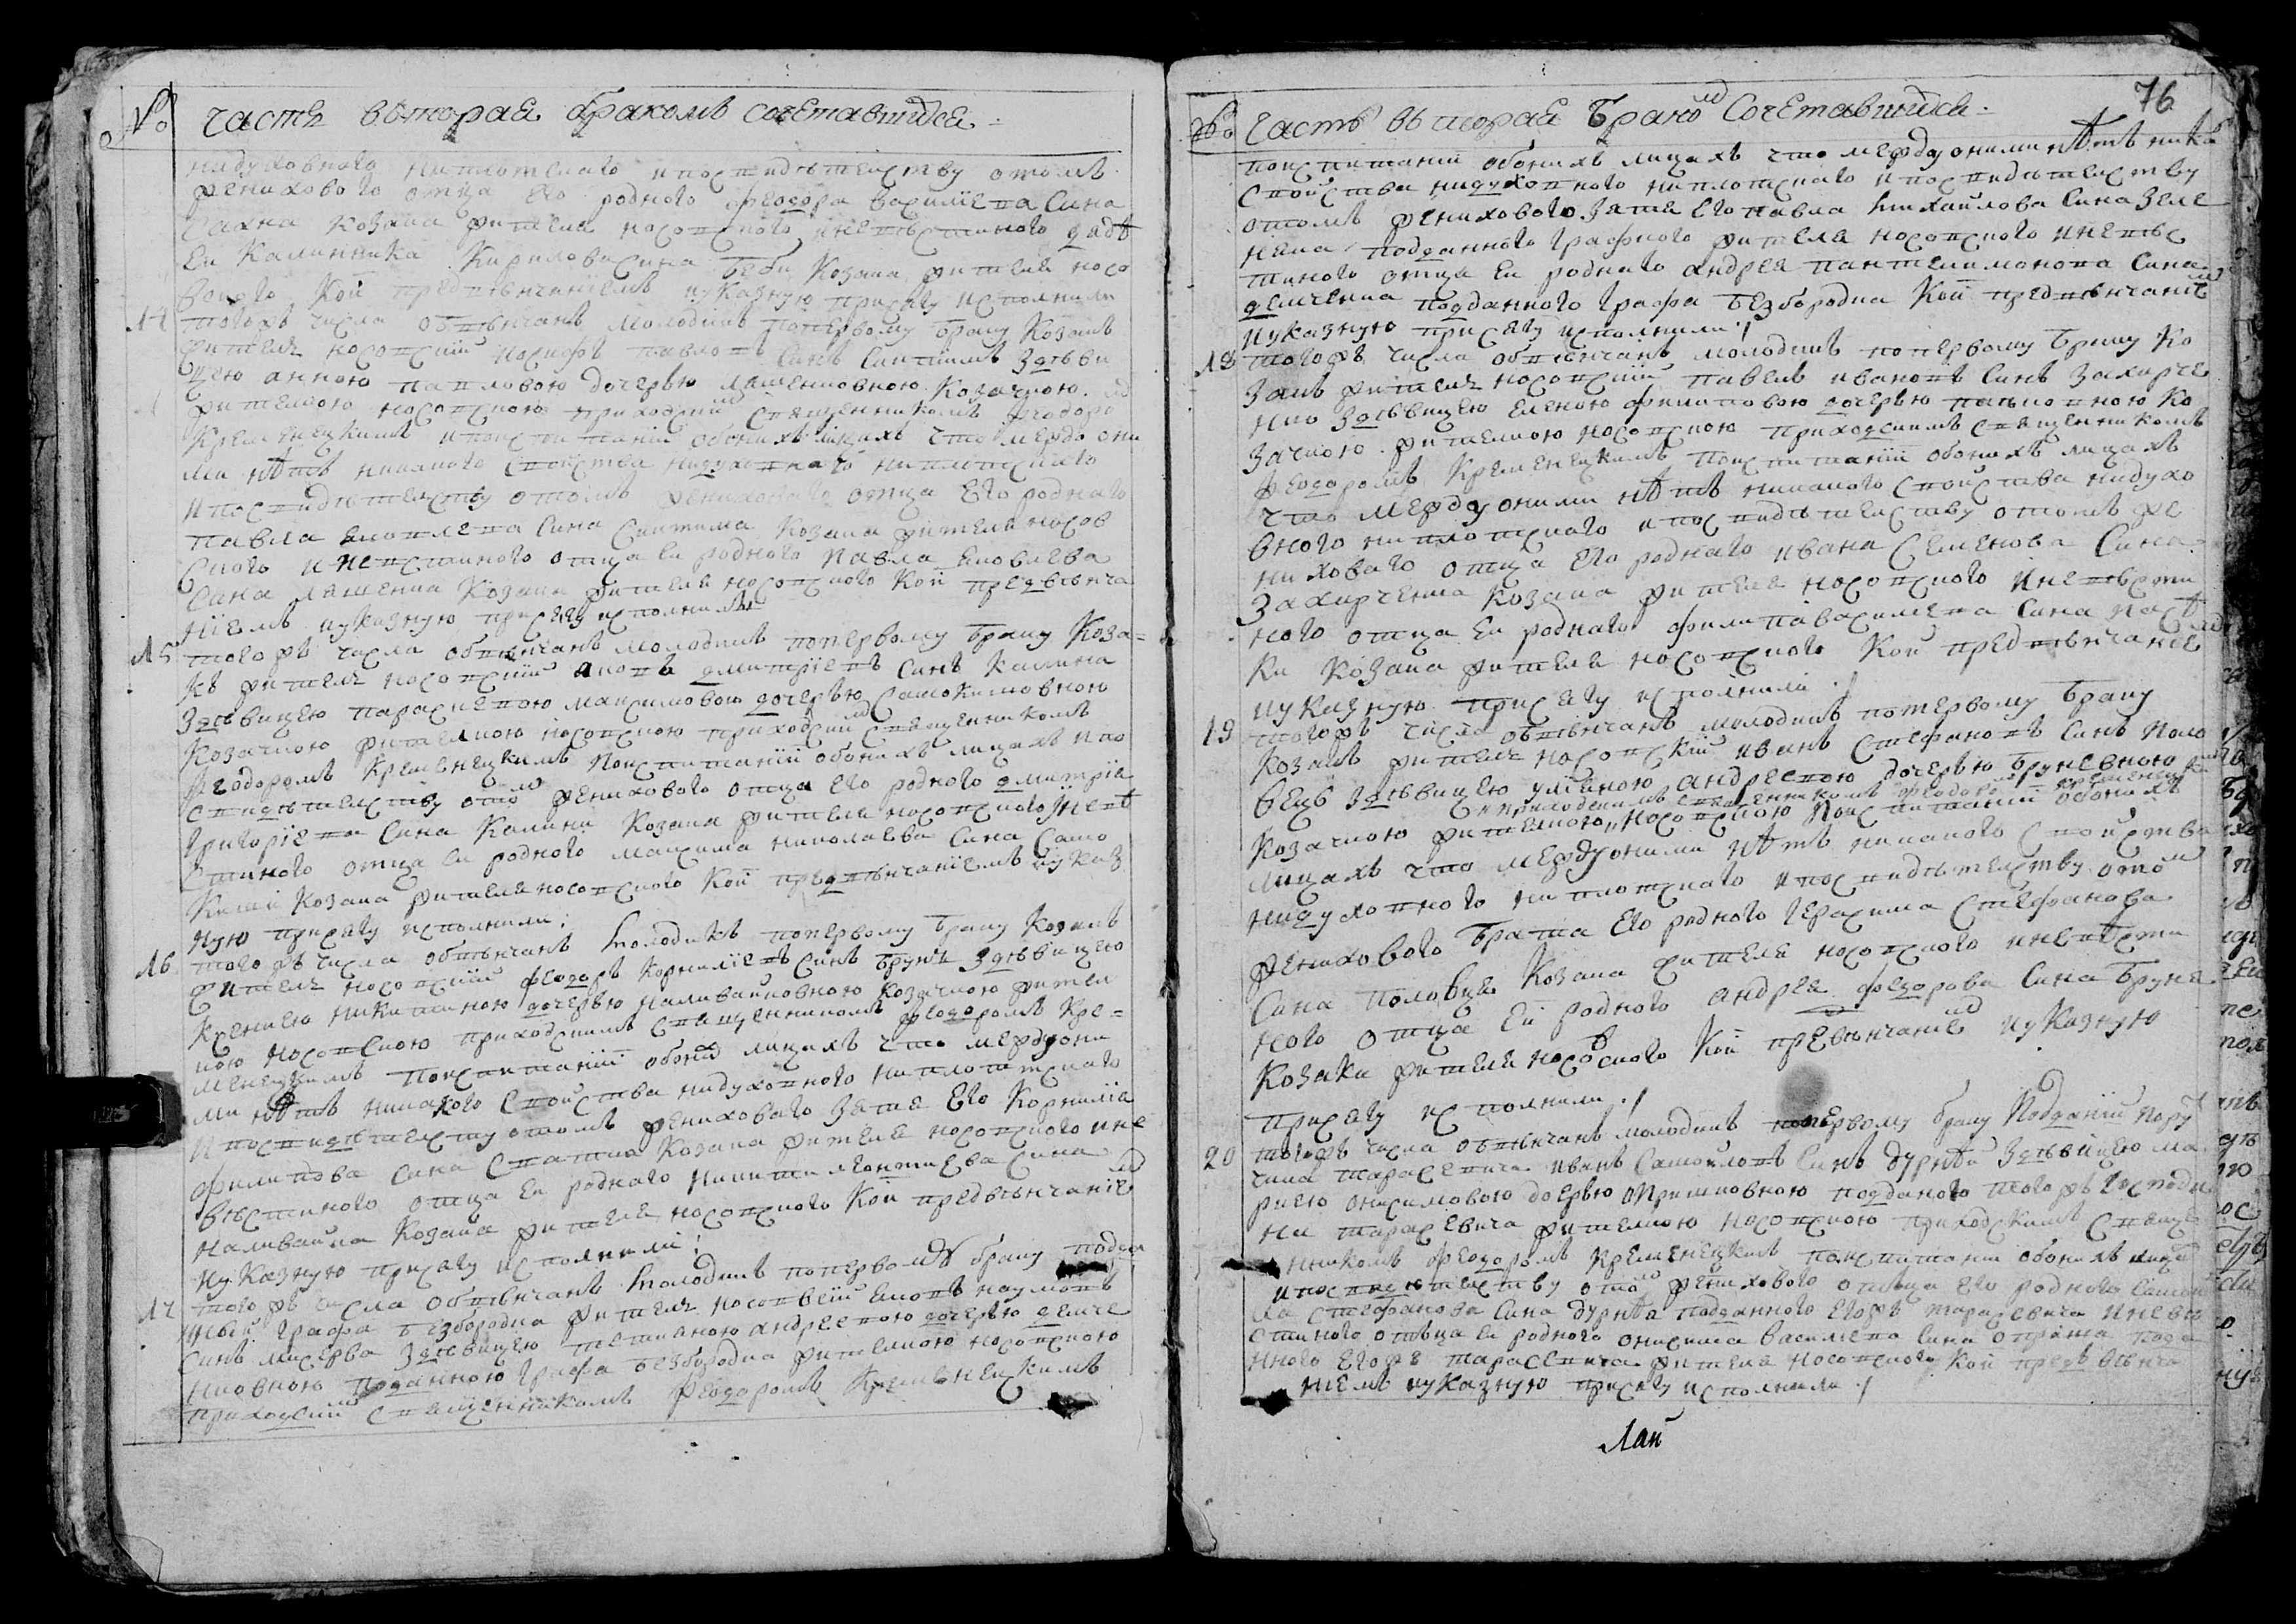 № часть вьторая бракомъ сочетавшихся
нидуховного ниплотскаго ипосвидѣтелству отомъ
женихового отца его родного феодора василіева сина
козака жителя носовского иневѣстиного дядѣ
ея калинника кирилова сина беби козака жителя носо
вского кой предвѣнчаніемъ иуказную присягу исполнили
14 тогожъ числа обвѣнчанъ молодикъ попервому браку козакъ
житель носовскій иосифъ павловъ синъ сантимъ здѣви
цею анною павловою дочерью ляшенковною козачкою
жителкою носовскою приходскимъ священникомъ феодоро
кременецкимъ ипоиспитаніи обоихъ лицахъ что междо они
ми нѣтъ никакого свойства нидуховнаго ниплотскаго
ипосвидѣтелству отомъ женихового отца его родного
павла яковлева сина сантима козака жителя носов
ского иневѣстиного отца ея родного павла яковлева
сина ляшенка козака жителя носовского кой предвѣнча
ніемъ иуказную присягу исполнили
15 тогожъ числа обвѣнчанъ молодикъ попервому браку коза=
къ житель носовскій яковъ дмитріевъ синъ калина
здѣвицею параскевою максимовою дочерью самокишовною
козачкою жителкою носовскою приходскимъ священникомъ
феодоромъ кременецкимъ поиспитаніи обоихъ лицахъ ипо
свидѣтелству отомъ женихового отца его родного дмитрія
григоріева сина калини козака жителя носовского иневѣ
стиного отца ея родного максима николаева сина само
киши козака жителя носовского кой предвѣнчаніемъ иуказ
ную присягу исполнили
16 тогожъ числа обвѣнчанъ молодикъ попервому браку козакъ
житель носовскій феодоръ корниліевъ синъ брунь здѣвицею
ксениею никитиною дочерью наливайковною козачкою жител
кою носовскою приходскимъ священникомъ феодоромъ кре=
менецкимъ поиспитаніи обоихъ лицахъ что междуони
ми нѣтъ никакого свойства нидуховного ниплотскаго
ипосвидѣтелству отомъ женихового зятя его корнилія
филипова сина козака жителя носовского ине
вѣстиного отца ея родного никити леонтиева сина
наливайка козака жителя носовского кой предвѣнчаніемъ
иуказную присягу исполнили
17 тогожъ числа обвѣнчанъ молодикъ попервому браку подда
ный графа безбородка житель носовскій яковъ наумовъ
синъ мисерва здѣвицею тетяною андреевою дочерью демче
нковною подданною графа безбородка жителкою носовскою
приходскимъ священникомъ феодоромъ кременецкимъ
76
№ часть вьторая бракомъ сочетавшихся
поиспитаніи обоихъ лицахъ что междуоними нѣтъ ника
свойства нидуховного ниплотскаго ипосвидѣтелству
отомъ женихового зятя его павла михайлова сина зеле
нека подданного графского жителя носовского иневѣс
тиного отца ея родного андрея пантелимонова сина
демченка подданного графа безбородка кой предвѣнчаніе
иуказную присягу исполнили
18 тогожъ числа обвѣнчанъ молодикъ попервому браку ко
закъ житель носовскій павелъ ивановъ синъ захарче
нко здѣвицею еленою филиповою дочерью ко
зачкою жителкою носовскою приходскимъ священникомъ
феодоромъ кременецкимъ поиспитаніи обоихъ лицахъ
что междуоними нѣтъ никакого свойства нидухо
вного ниплотскаго ипосвидѣтелству отомъ же
нихового отца его родного ивана семенова сина
захарченка козака жителя носовского иневѣсти
ного отца ея родного филипа василиева сина
козака жителя носовского кой предвѣнчаніе
иуказную присягу исполнили
19 тогожъ числа обвѣнчанъ молодикъ попервому браку
козакъ житель носовскій иванъ стефановъ синъ поло
вецъ здѣвицею уліяною андреевою дочерью бруневною
и приходскимъ священникомъ феодоромъ кременецки
козачкою жителкою носовскою поиспитаніи обоихъ
лицахъ что междуоними нѣтъ никакого свойства
нидуховного ниплотскаго ипосвидѣтелству отомъ
женихового брата его родного герасима стефанова
сина половця козака жителя носовского иневѣсти
ного отца ея родного андрея федорова сина бруня
козака жителя носовского кой превѣнчаніе иуказную
присягу исполнили
20 тогожъ числа обвѣнчанъ молодикъ попервому браку подданій пору
чика тарасевича иванъ самойловъ синъ дурнѣй здѣвицею ма
риею онисимовою дочерью опришковною подданого тогожъ господи
на тарасевича жителкою носовскою приходскимъ священ
никомъ феодоромъ кременецкимъ поиспитании обоихъ лицахъ
ипосвидѣтелству отомъ женихового отьца его родного самой
ла стефанова сина дурнѣя подданного егожъ тарасевича иневѣ
стиного отьца ея родного онисима василиева сина опришка подда
нного егожъ тарасевича жителя носовского кой предвѣнча
ніемъ иуказную присягу исполнили
Май